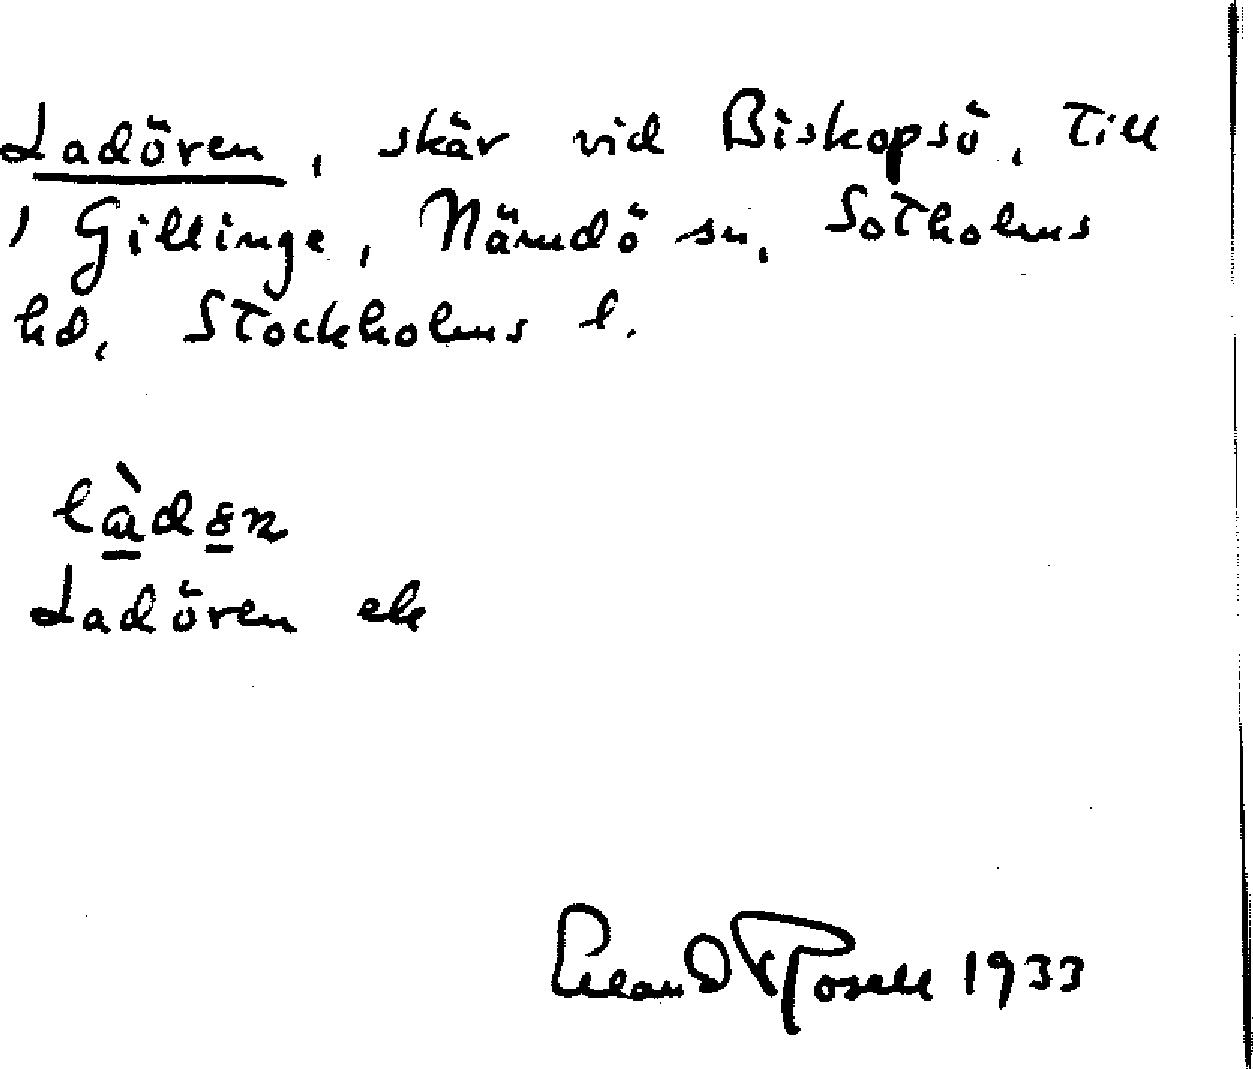 Ladören, skär vid Biskopsö, till
1 Gillinge, Nämdö sn, Sotholms
hd, Stockholms l.
làden
Ladören ek
Erland Rosell 1933